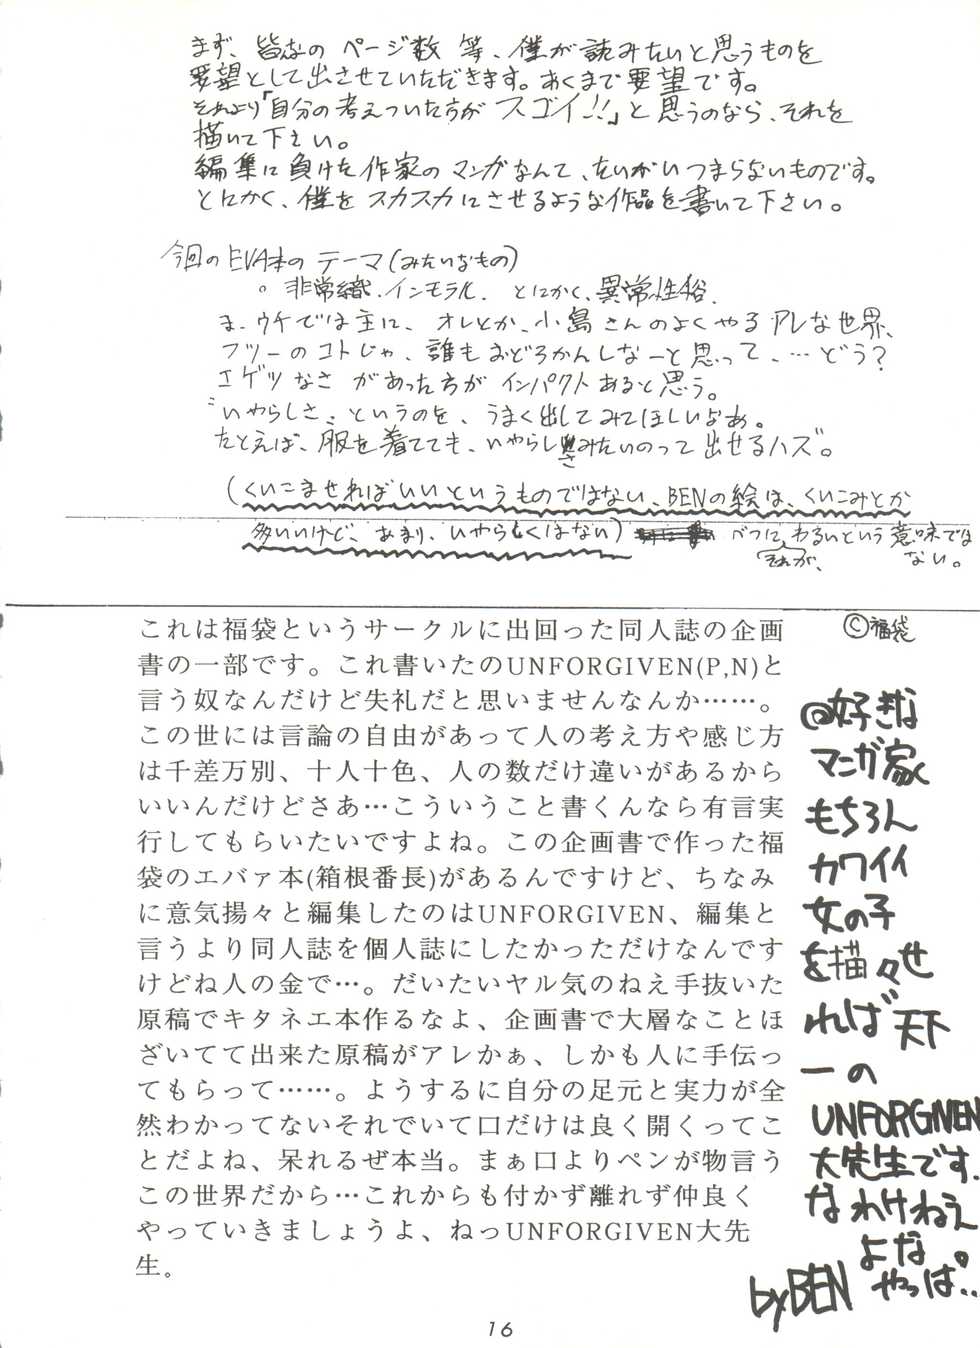 まず、皆なの ページ数 等、僕が読みたいと思うものを
要望として出させていただきます。あくまで要望です。
それより「自分の考えついた方が スゴイ!!」と思うのなら、それを
描いて下さい。
編集に負けた作家の マンガなんて、たいがいつまらないものです。
とにかく、僕を スカスカにさせるような作品を書いて下さい。
今回のEVA本の テーマ(みたいなもの)
。非常識.インモラル. とにかく、異常性俗.
ま.ウチでは主に、オレとか、小島さんのよくやる アレな世界、
フツーのコトじゃ、誰もおどろかんしなーと思って、…どう?
エゲツなさ があった方が インパクトあると思う。
"いやらしさ"というのを、うまく出してみてほしいなあ。
たとえば、服を着てても、いやらしさみたいのって出せるハズ。
(くいこませればいいというものではない、BENの絵は、くいこみとか
多いいけど、あまり、いやらしくはない) べつに、それが、わるいという意味では
ない。
©福袋
これは福袋というサークルに出回った同人誌の企画
書の一部です。これ書いたのUNFORGIVEN(P,N)と
言う奴なんだけど失礼だと思いませんなんか……。
この世には言論の自由があって人の考え方や感じ方
は千差万別、十人十色、人の数だけ違いがあるから
いいんだけどさあ…こういうこと書くんなら有言実
行してもらいたいですよね。この企画書で作った福
袋のエバァ本(箱根番長)があるんですけど、ちなみ
に意気揚々と編集したのはUNFORGIVEN、編集と
言うより同人誌を個人誌にしたかっただけなんです
けどね人の金で…。だいたいヤル気のねえ手抜いた
原稿でキタネエ本作るなよ、企画書で大層なことほ
ざいてて出来た原稿がアレかぁ、しかも人に手伝っ
てもらって……。ようするに自分の足元と実力が全
然わかってないそれでいて口だけは良く開くってこ
とだよね、呆れるぜ本当。まぁ口よりペンが物言う
この世界だから…これからも付かず離れず仲良く
やっていきましょうよ、ねっUNFORGIVEN大先
生。
@好きな
マンガ家
もちろん
カワイイ
女の子
を描かせ
れば天下
一の
UNFORGIVEN
大先生です.
なわけねえ
よな。
やっぱ..
by BEN
16